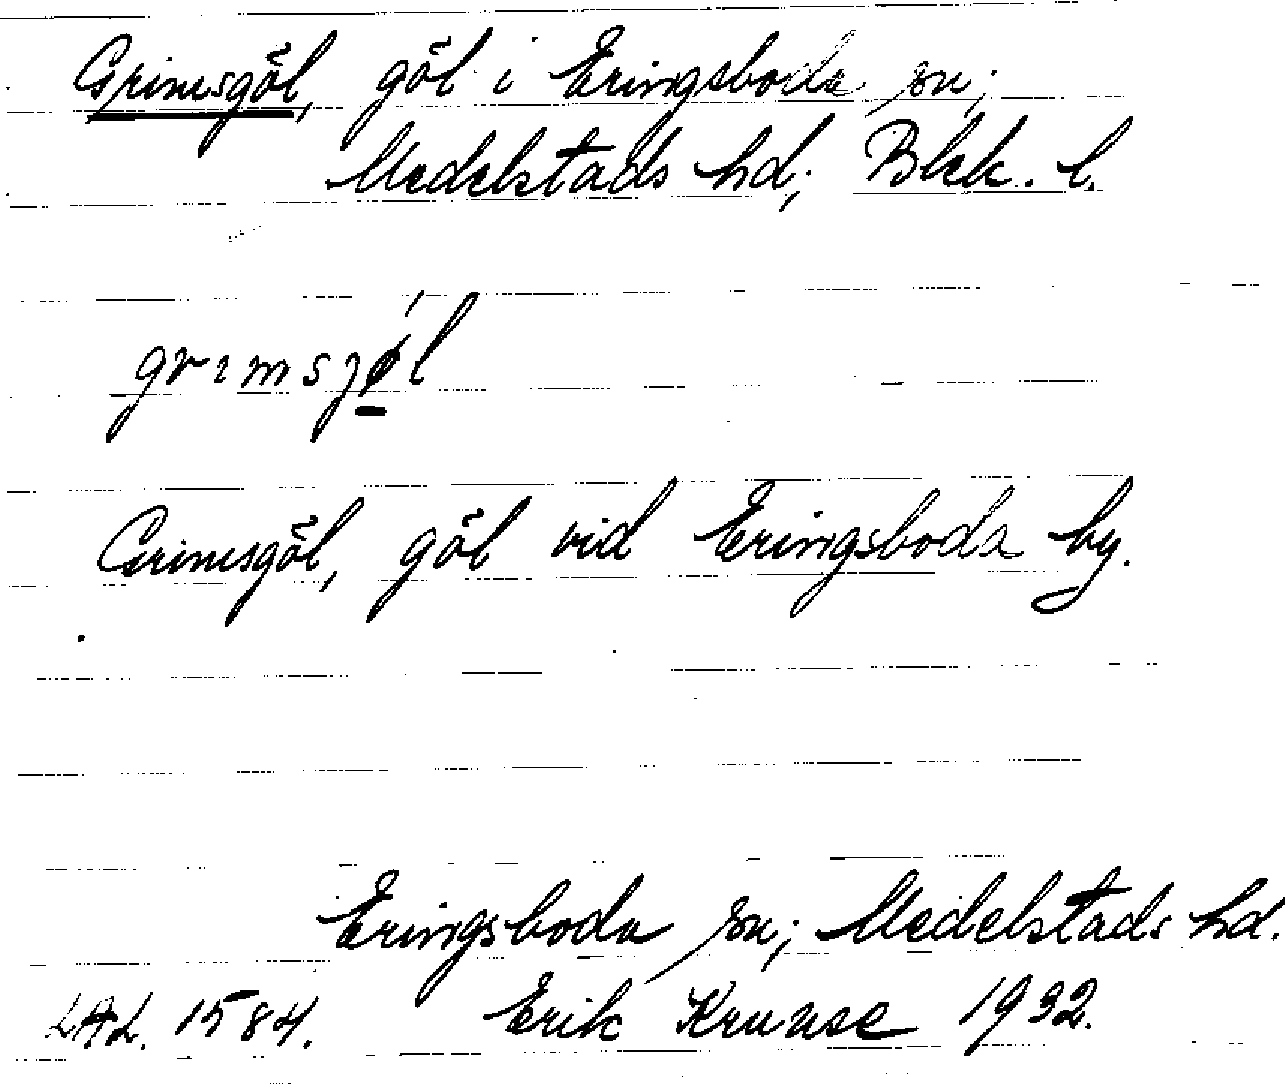 Grimsgöl, göl i Eringsboda sn;
Medelstads hd; Blek. l.
grimsgøl
Grimsgöl, göl vid Eringsboda by.
Eringsboda sn; Medelstads hd.
LAL. 1584. Erik Kruuse 1932.